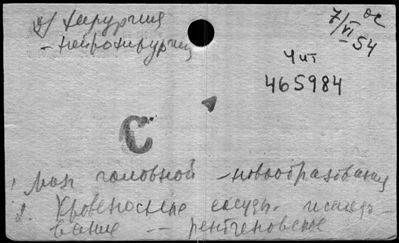 2) хирургия
ос
– нейрохирургия
7/VI 54
Чит
465984
С
1. Мозг головной – новообразования
2. Кровеносные сосуды. исследо-
вание – рентгеновское